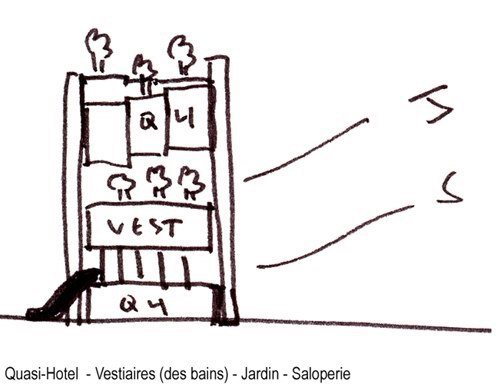 Q H
J
VEST
S
Q H
Quasi-Hotel - Vestiaires (des bains) - Jardin - Saloperie